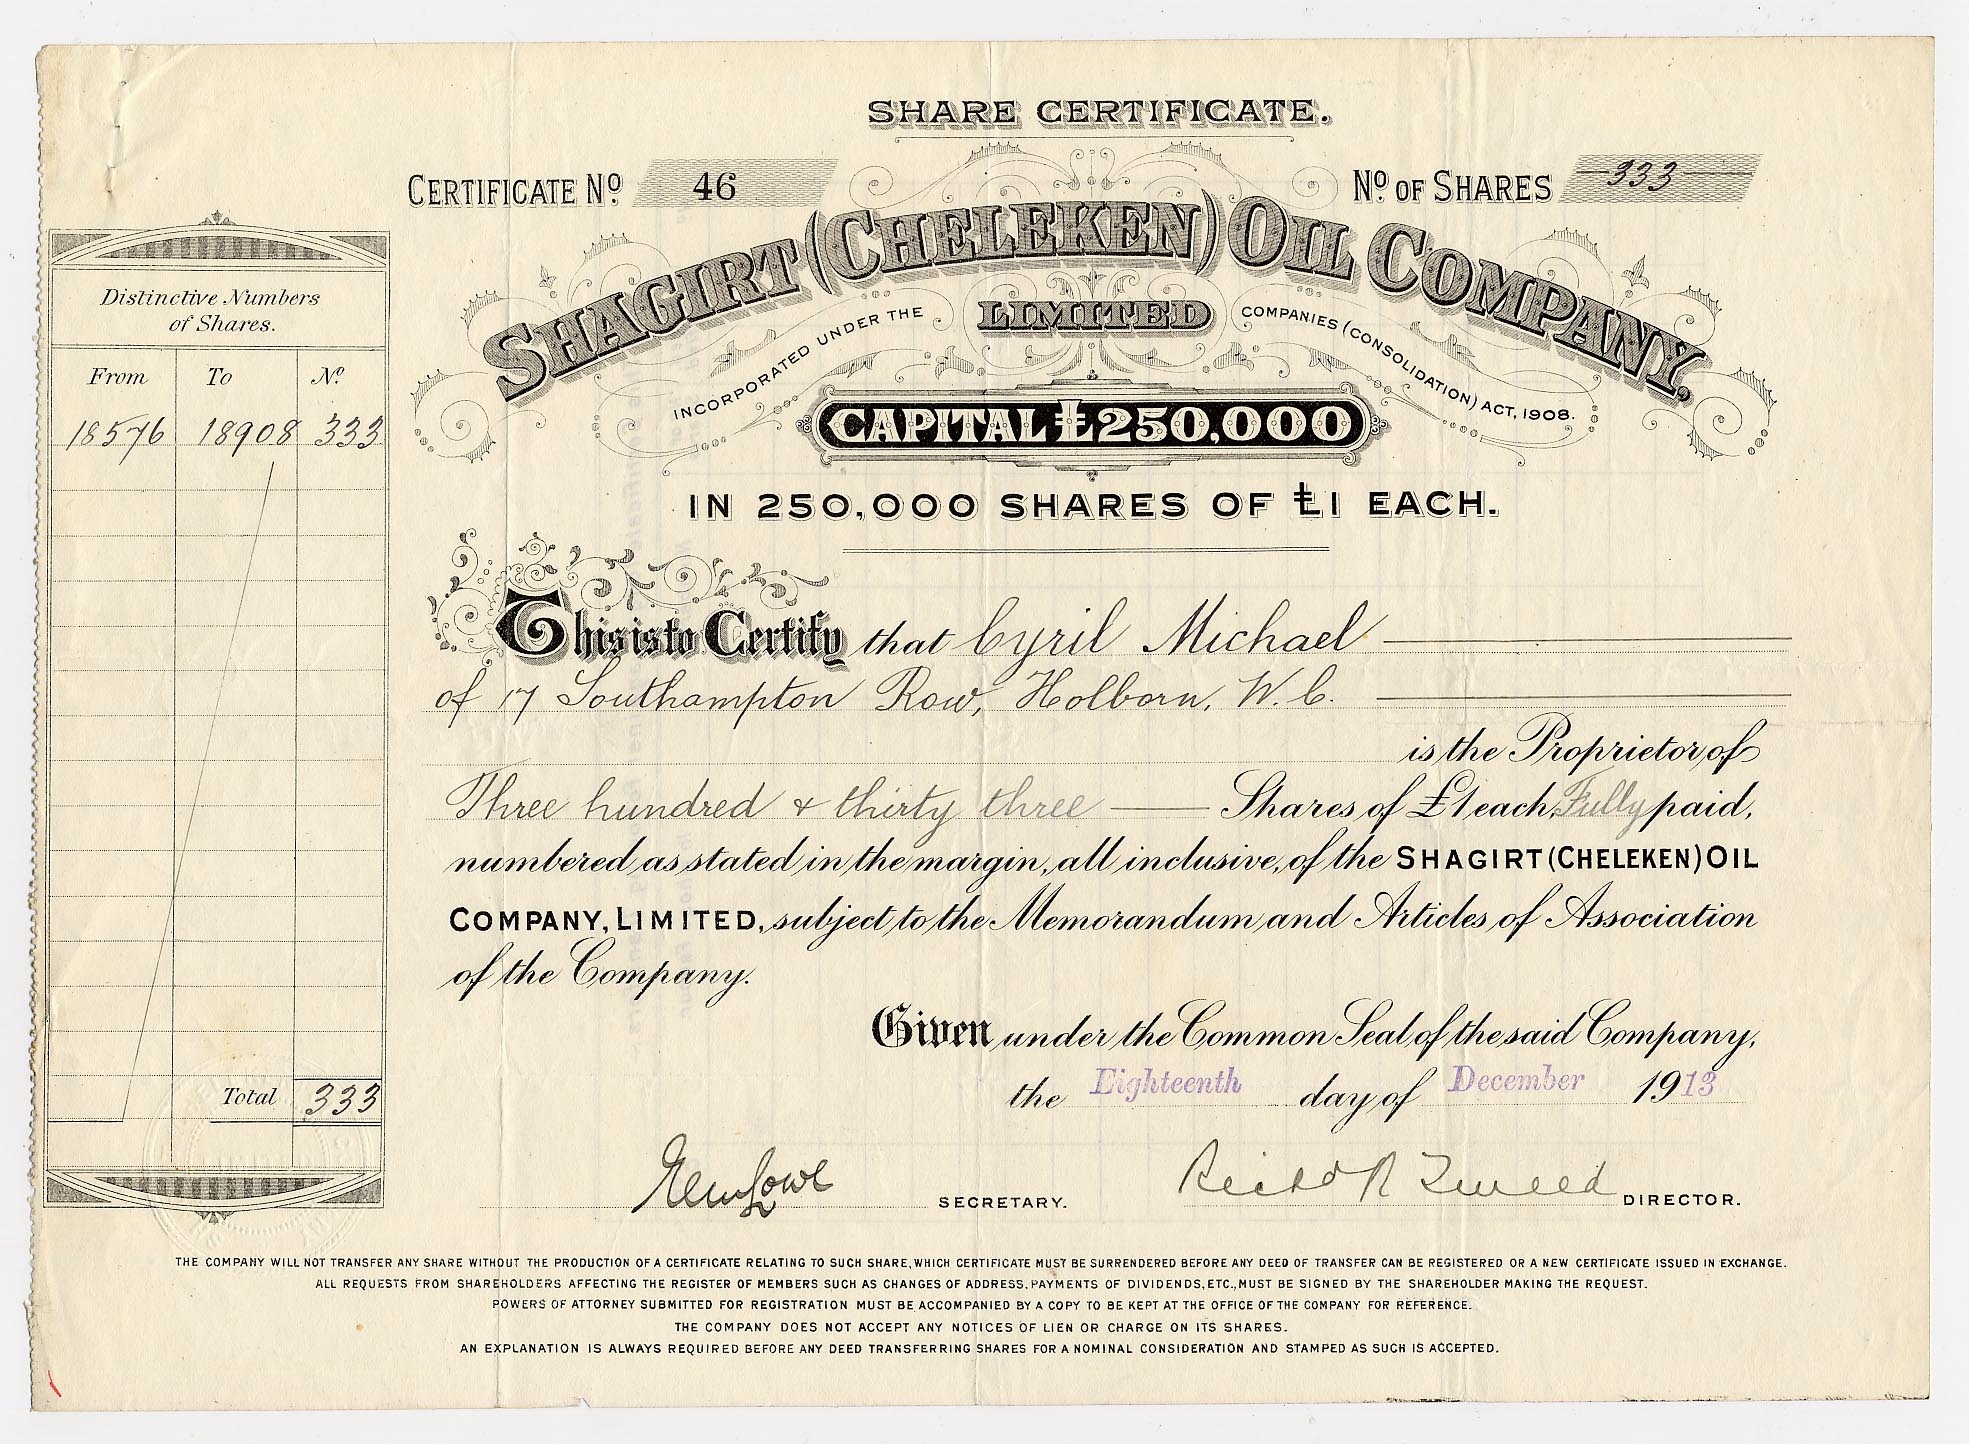 SHARE CERTIFICATE.
CERTIFICATE No 46
No. OF SHARES 333
SHAGIRT (CHELEKEN) OIL COMPANY,
LIMITED
INCORPORATED UNDER THE COMPANIES (CONSOLIDATION) ACT, 1908.
CAPITAL £250,000
IN 250,000 SHARES OF £1 EACH.
Distinctive Numbers
of Shares.
From To No.
18576 18908 333
Total 333
This is to Certify that Cyril Michael
of 17 Southampton Row, Holborn, W.C.
is the Proprietor of
Three hundred & thirty three Shares of £1 each, Fully paid,
numbered as stated in the margin, all inclusive, of the SHAGIRT (CHELEKEN) OIL
COMPANY, LIMITED, subject to the Memorandum and Articles of Association
of the Company.
Given under the Common Seal of the said Company,
the Eighteenth day of December 1913
Lowe SECRETARY.
Tweed DIRECTOR.
THE COMPANY WILL NOT TRANSFER ANY SHARE WITHOUT THE PRODUCTION OF A CERTIFICATE RELATING TO SUCH SHARE, WHICH CERTIFICATE MUST BE SURRENDERED BEFORE ANY DEED OF TRANSFER CAN BE REGISTERED OR A NEW CERTIFICATE ISSUED IN EXCHANGE.
ALL REQUESTS FROM SHAREHOLDERS AFFECTING THE REGISTER OF MEMBERS SUCH AS CHANGES OF ADDRESS, PAYMENTS OF DIVIDENDS, ETC., MUST BE SIGNED BY THE SHAREHOLDER MAKING THE REQUEST.
POWERS OF ATTORNEY SUBMITTED FOR REGISTRATION MUST BE ACCOMPANIED BY A COPY TO BE KEPT AT THE OFFICE OF THE COMPANY FOR REFERENCE.
THE COMPANY DOES NOT ACCEPT ANY NOTICES OF LIEN OR CHARGE ON ITS SHARES.
AN EXPLANATION IS ALWAYS REQUIRED BEFORE ANY DEED TRANSFERRING SHARES FOR A NOMINAL CONSIDERATION AND STAMPED AS SUCH IS ACCEPTED.